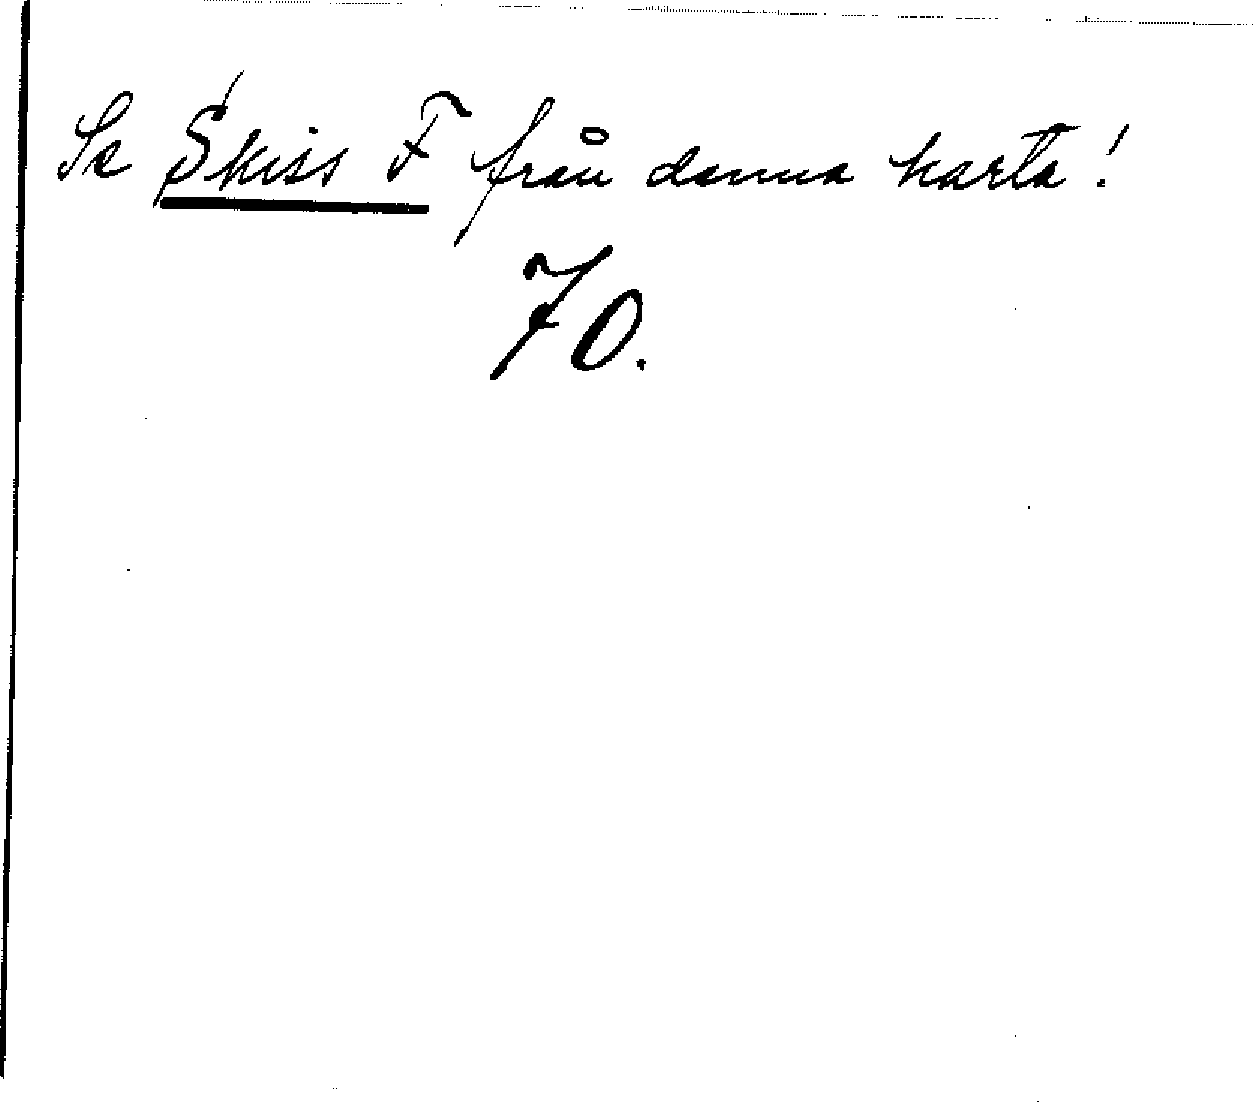 Se Skiss F från denna karta!
70.